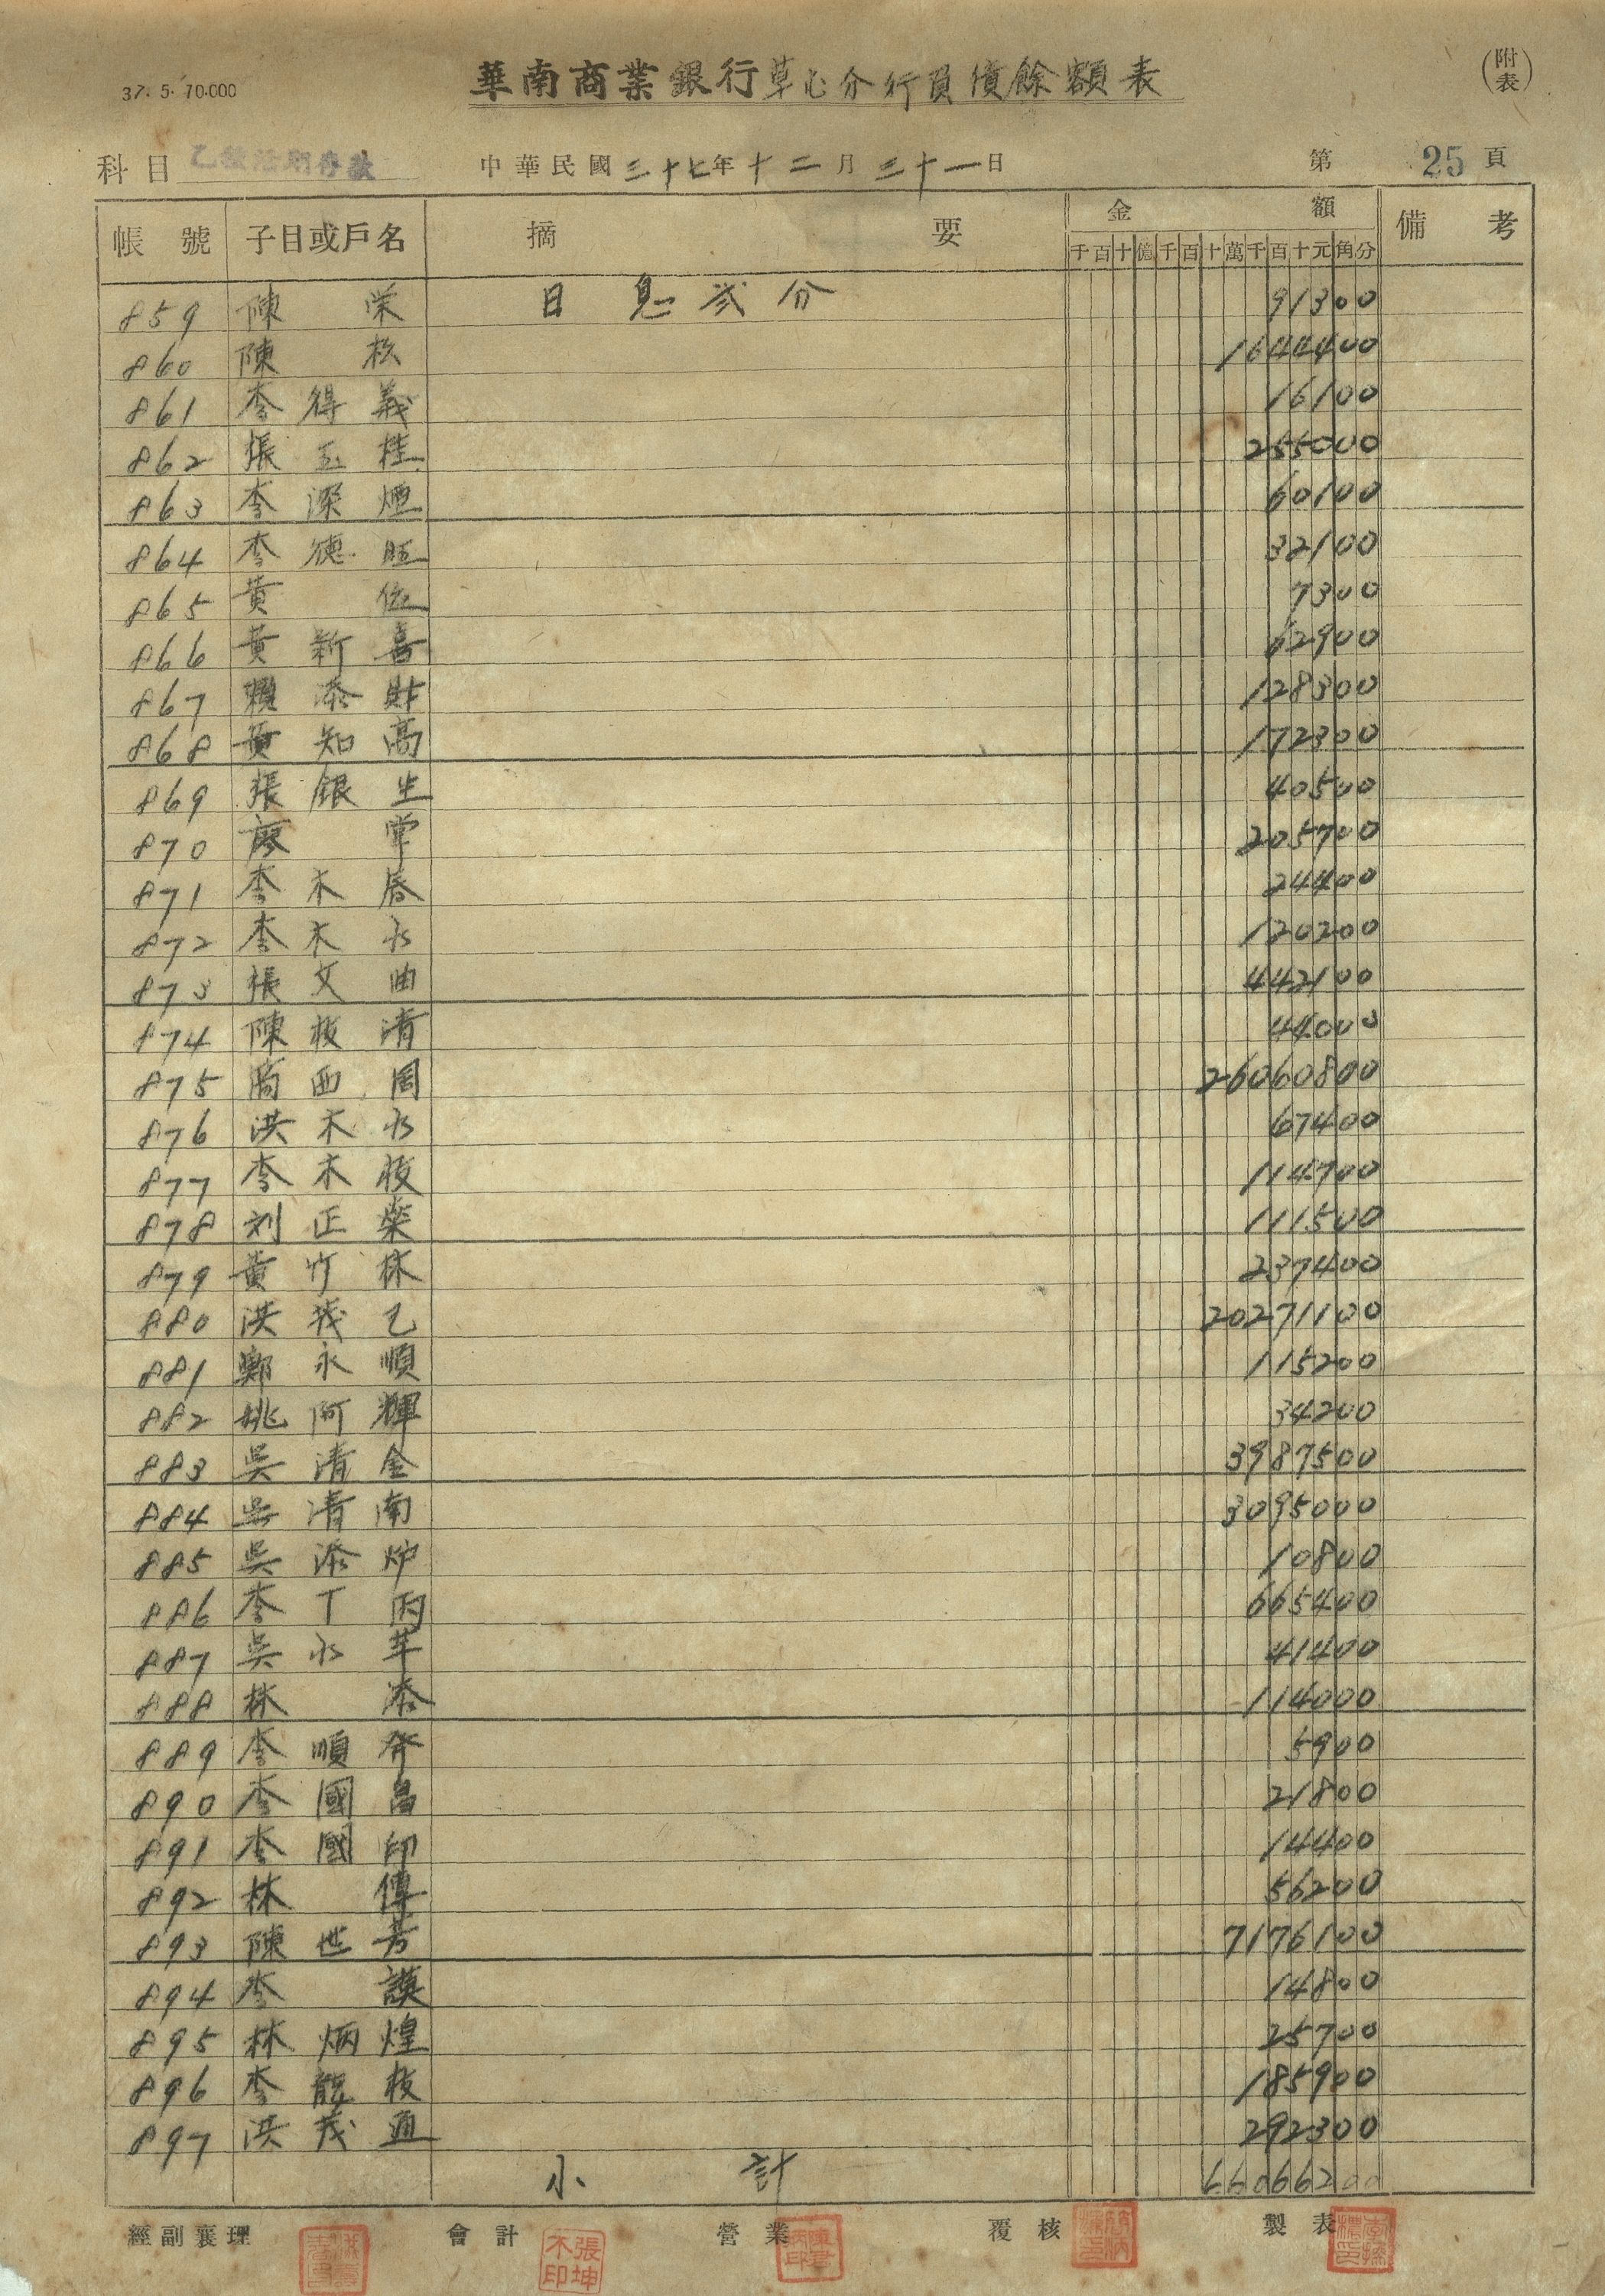 37.5.10.000
華南商業銀行草屯分行負債餘額表
(附表)
科目 乙種活期存款 中華民國三十七年十二月三十一日 第25頁
帳號 子目或戶名 摘要 金額 備考
千百十億千百十萬千百十元角分
859 陳 榮 日息貳分 91300
860 陳 松 1644400
861 李得義 16100
862 張玉桂 255000
863 李深煙 60100
864 李德旺 32100
865 黃 依 7300
866 黃新喜 62900
867 賴添財 128300
868 黃知高 172300
869 張銀生 40500
870 廖 常 205700
871 李木春 24400
872 李木水 120200
873 張文曲 442100
874 陳枝清 44000
875 簡西周 26060800
876 洪木水 67400
877 李木枝 114700
878 刘正榮 111500
879 黃竹林 237400
880 洪我己 20271100
881 鄭永順 115200
882 姚阿輝 34200
883 吳清金 3987500
884 吳清南 3095000
885 吳添炉 10800
886 李丁丙 665400
887 吳水苹 41400
888 林 添 114000
889 李順齐 5900
890 李國昌 21800
891 李國印 14400
892 林 傳 56200
893 陳世芳 7176100
894 李 謨 14800
895 林炳煌 25700
896 李龍枝 185900
897 洪茂通 292300
小計 66066200
經副襄理 會計 營業 覆核 製表
張坤木印